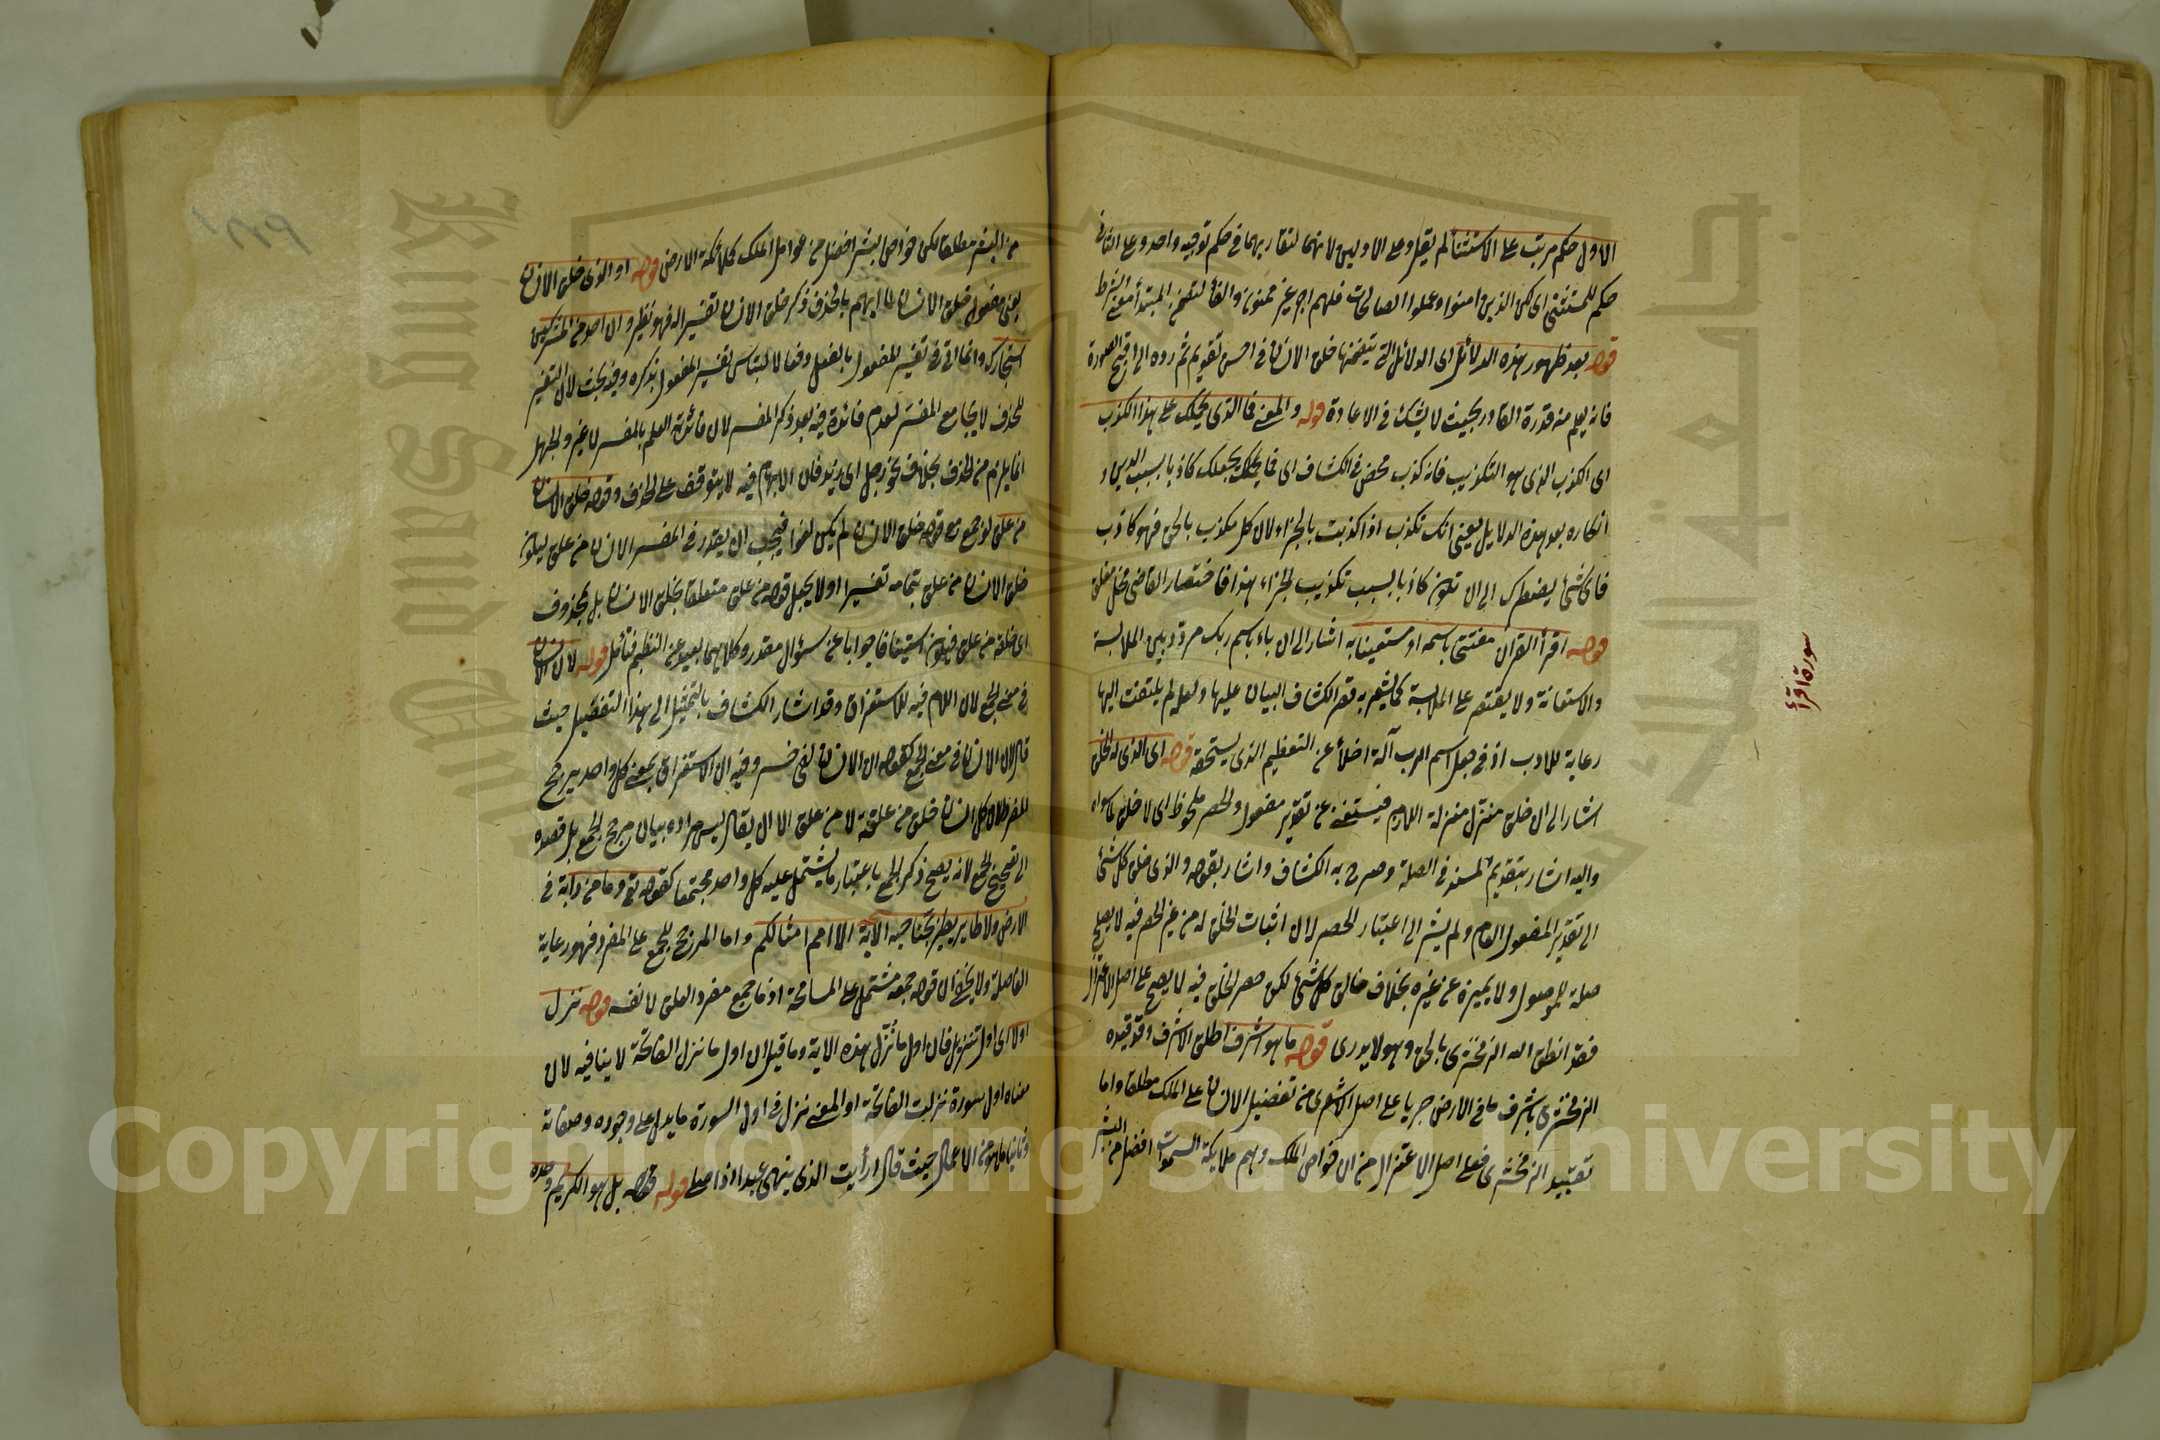 الاول حكم مرتب على الاستثناء لم يقل وعلى الاوليين لانهما لتقاربهما في حكم توجيه واحد وعلى الثاني
حكم للمستثنى اى لكن الذين امنوا وعملوا الصالحات فلهم اجر غير ممنون والفاء لتضمن المبتدأ معنى الشرط
قوله بعد ظهور هذه الدلائل اى الدلائل التى يتضمنها خلق الانسان في احسن تقويم ثم رده الى اقبح الصورة
فانه يعلم منه قدرة القادر بحيث لا يشك في الاعادة قوله والمعنى فما الذى يحملك على هذا الكذب
اى الكذب الذى هو التكذيب فانه كذب محض في الكشاف اى فما يجعلك كاذبا بسبب الدين و
انكاره بعد هذه الدلايل يعنى انك تكذب اذا كذبت بالجزاء لان كل مكذب بالحق فهو كاذب
فاى شئ يضطرك الى ان تكون كاذبا بسبب تكذيب الجزاء هذا فاختصار القاضى مخل مغلق
قوله اقرأ القرآن مفتتحا باسمه او مستعينا به اشار الى ان باء باسم ربك مرددة بين الملابسة
والاستعانة ولا يقتصر على الملابسة كما يشعر به قصر الكشاف البيان عليها ولعله لم يلتفت اليها
رعاية للادب اذ في جعل اسم الرب آلة اخلاء عن التعظيم الذى يستحقه قوله اى الذى له الخلق
اشار الى ان خلق منزل منزلة اللازم فيستغنى عن تقدير مفعول والحصر ملحوظ اى لا خلق لما سواه
واليه اشار بتقديم المسند في الصلة وصرح به الكشاف واشار بقوله والذى خلق كل شئ
الى تقدير المفعول العام ولم يشر الى اعتبار الحصر لان اثبات الخلق له من غير الحصر فيه لا يصلح
صلة للموصول ولا يميزه عن غيره بخلاف خالق كل شئ لكن حصر الخلق فيه لا يصح على اصل الاعتزال
فقد انطق الله الزمخشرى بالحق وهو لا يدرى قوله ما هو اشرف اطلق الاشرف وقد قيده
الزمخشرى باشرف ما في الارض جريا على اصل الاشعرى من تفضيل الانسان على الملك مطلقا واما
تقييد الزمخشرى فعلى اصل الاعتزال من ان خواص الملك وهم ملايكة السموات افضل من البشر
سورة اقرأ
من البشر مطلقا لكن خواص البشر افضل من عوام الملك كملائكة الارض قوله او الذى خلق الانسان
يعنى مفعول خلق الانسان لما ابهم بالحذف ذكر خلق الانسان تفسيرا له فهو نظير وان احد من المشركين
استجارك وانما اتى في تفسير المفعول بالفعل دفعا لالتباس تفسير المفعول بذكره وفيه بحث لان التفسير
للحذف لا يجامع المفسر لعدم فائدة فيه بعد ذكر المفسر لان فائدته العلم بالمفسر لا غير والجهل
انما يلزم من الحذف بخلاف نحو رجل اى زيد فان الابهام فيه لا يتوقف على الحذف وقوله خلق الانسان
من علق لو جمع مع قوله خلق الانسان لم يكن لغوا فيجب ان يقدر في المفسر الانسان من علق ليكون
خلق الانسان من علق بتمامه تفسيرا او لا يجعل قوله من علق متعلقا بخلق الانسان بل بمحذوف
اى خلقه من علق فيكون استينافا جوابا عن سئوال مقدر وكلاهما بعيد عن النظم فتأمل قوله لان الانسان
في معنى الجمع لان اللام فيه للاستغراق وقد اشار الكشاف بالتمثيل الى هذا التفصيل حيث
قال لان الانسان في معنى الجمع كقوله ان الانسان لفى خسر وفيه ان الاستغراق بمعنى كل واحد يرجح
المفرد لان كل انسان خلق من علقة لا من علق الا ان يقال ليس مراده بيان مرجح الجمع بل قصده
الى تصحيح الجمع لانه يصح ذكر الجمع باعتبار ما يشتمل عليه كل واحد مجتمعا كقوله تع وما من دابة في
الارض ولا طاير يطير بجناحيه الاية الا امم امثالكم واما المرجح للجمع على المفرد فهو رعاية
الفاصلة ولا يخفى ان قوله جمعه مشتمل على المسامحة اذ ما جمع مفرد العلق لا نفسه قوله نزل
اولا اى اول تنزيل فان اول ما نزل هذه الاية وما قيل ان اول ما نزل الفاتحة لا ينافيه لان
معناه اول سورة نزلت الفاتحة او المعنى نزل في اول السورة ما يدل على وجوده وصفاته
وثانيا ما هو من الاعمال حيث قال ارأيت الذى ينهى عبدا اذا صلى قوله بل هو الكريم وحده
Copyright © King Saud University
King Saud University